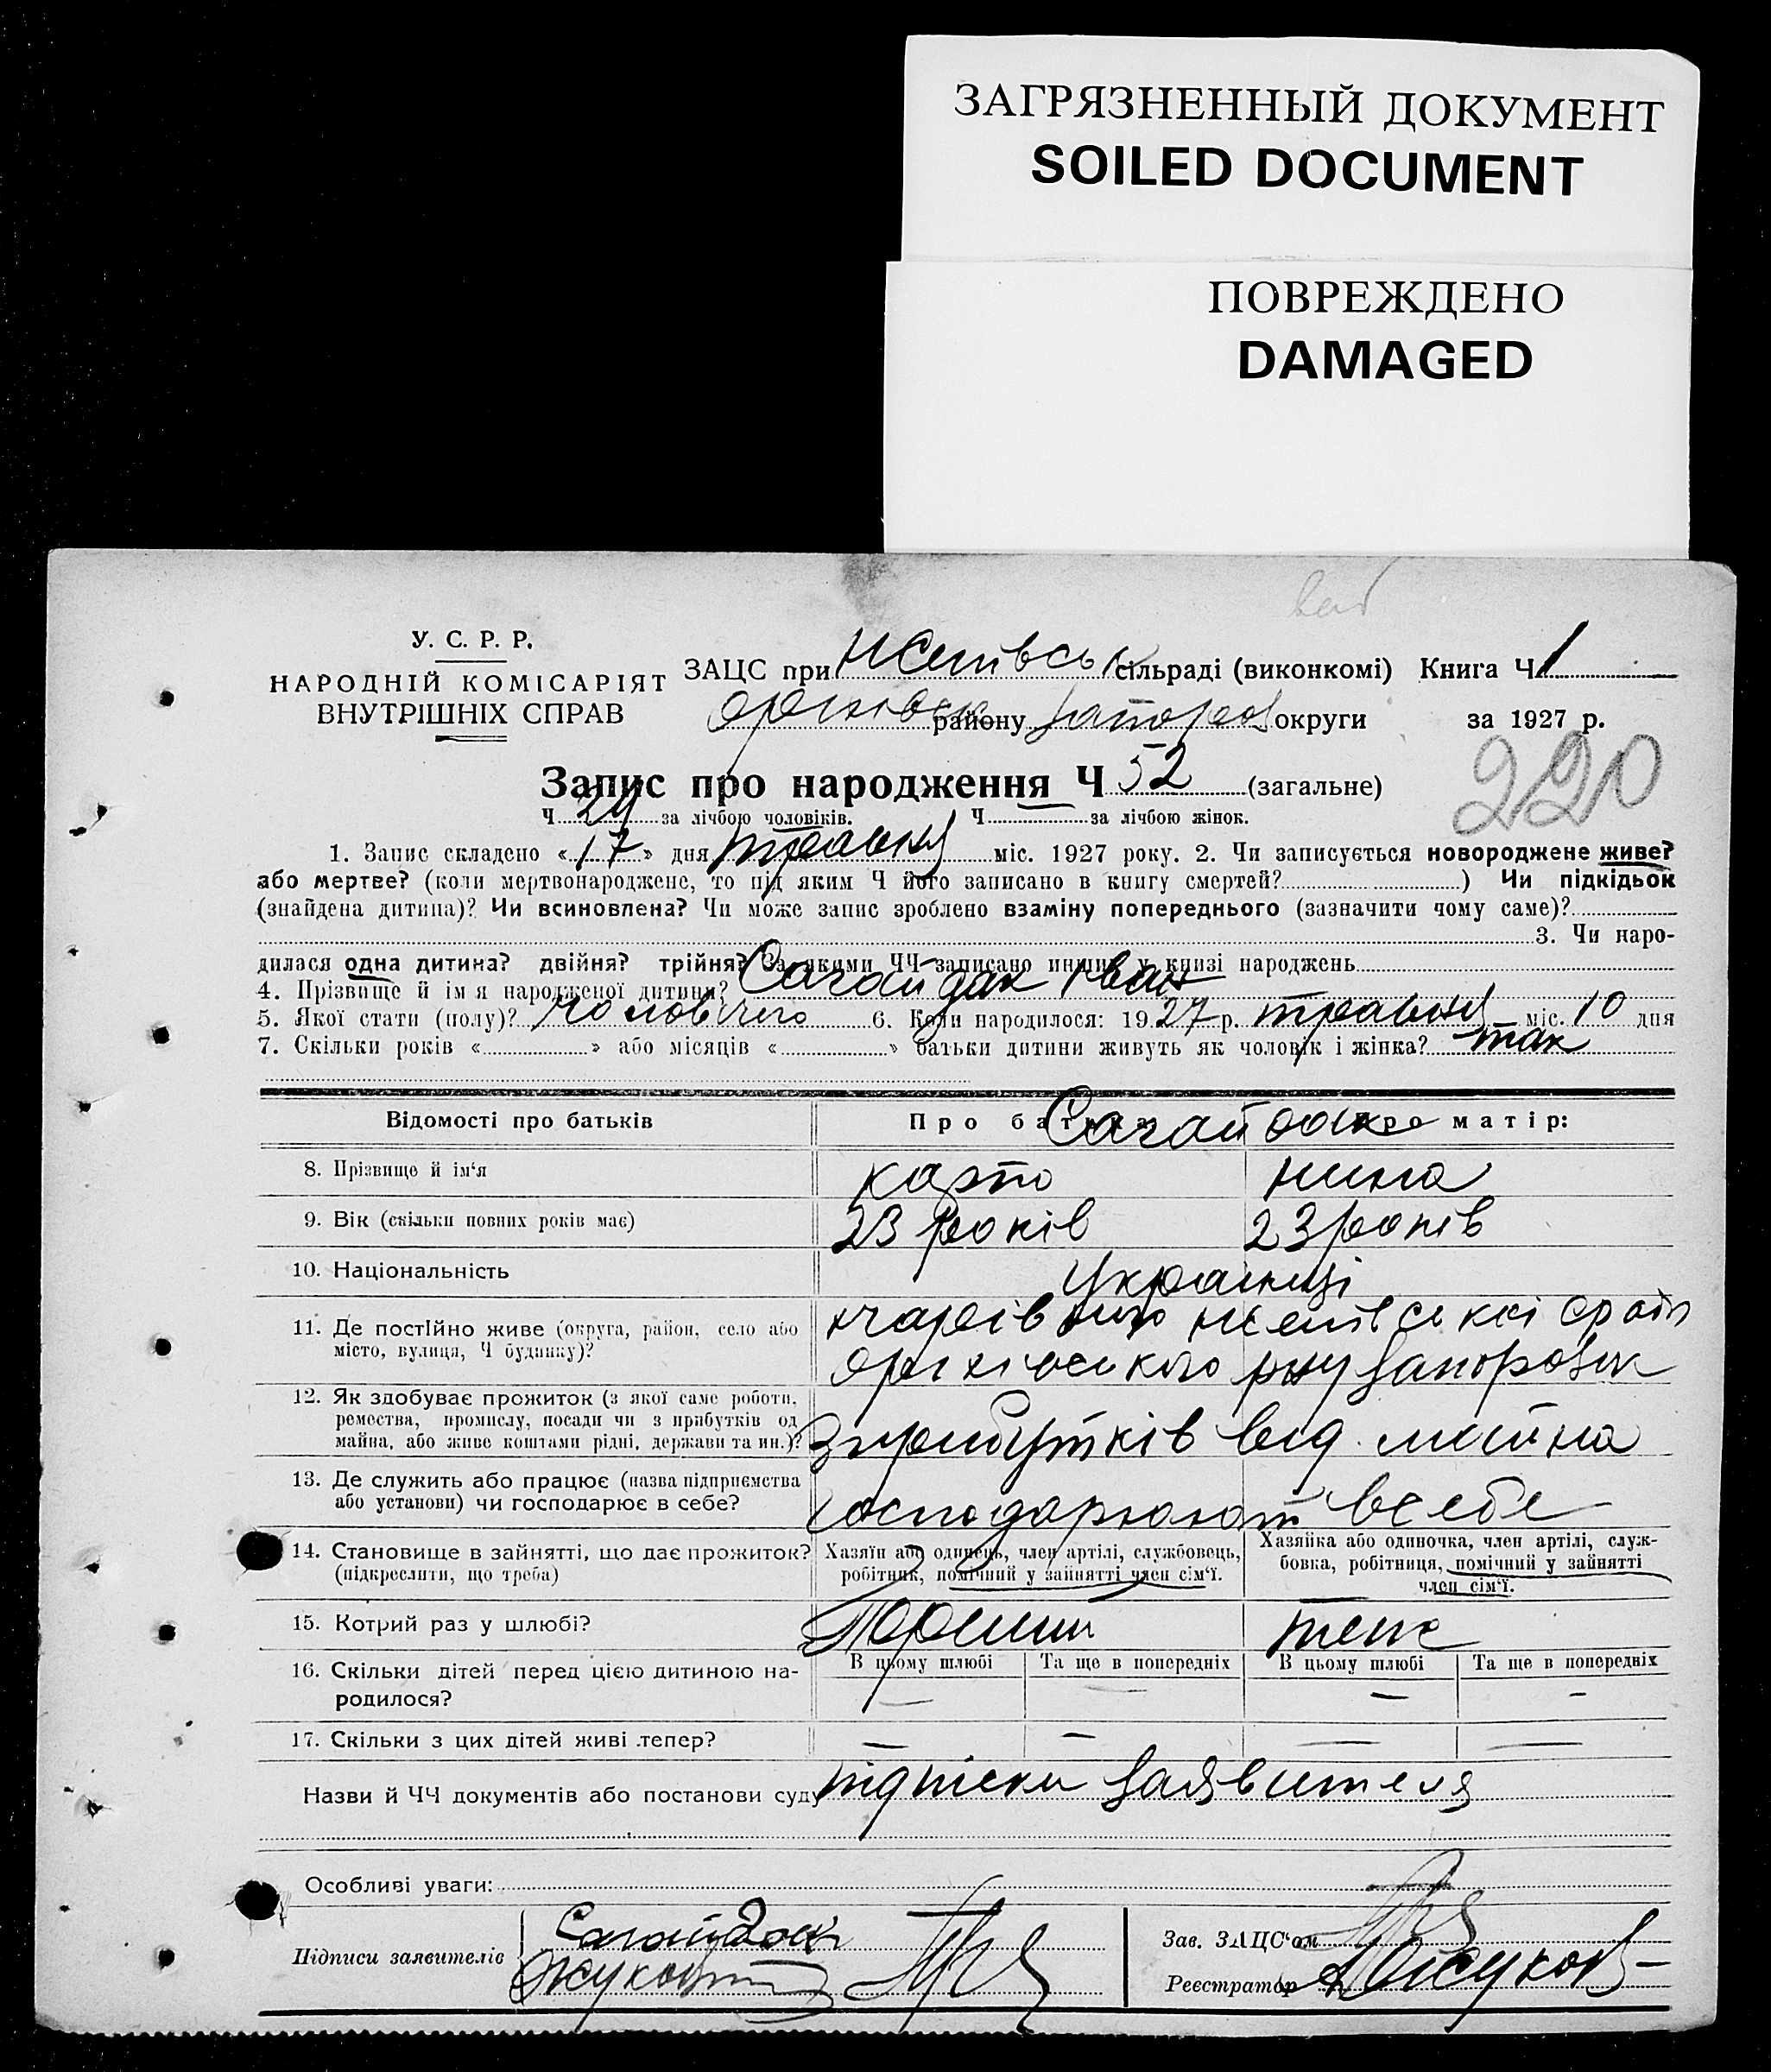 ЗАГРЯЗНЕННЫЙ ДОКУМЕНТ
SOILED DOCUMENT
ПОВРЕЖДЕНО
DAMAGED
У. С. Р. Р.
НАРОДНІЙ КОМІСАРІЯТ
ВНУТРІШНІХ СПРАВ
ЗАЦС при сільраді (виконкомі) Книга Ч 1
району округи за 1927 р.
220
Запис про народження Ч 52 (загальне)
Ч 24 за лічбою чоловіків. Ч за лічбою жінок.
1. Запис складено «17» дня травня міс. 1927 року. 2. Чи записується новороджене живе?
або мертве? (коли мертвонароджене, то під яким Ч його записано в книгу смертей? ) Чи підкідьок
(знайдена дитина)? Чи всиновлена? Чи може запис зроблено взаміну попереднього (зазначити чому саме)?
3. Чи наро-
дилася одна дитина? двійня? трійня? За якими ЧЧ записано инших у книзі народжень
4. Прізвище й ім'я народженої дитини? Сагайдак Іван
5. Якої стати (полу)? чоловічого 6. Коли народилося: 1927 р. травня міс. 10 дня
7. Скільки років « » або місяців « » батьки дитини живуть як чоловік і жінка? так
Відомості про батьків Про батька: Сагайдак Про матір:
8. Прізвище й ім'я карпо нина
9. Вік (скільки повних років має) 23 років 23 років
10. Національність Українці
11. Де постійно живе (округа, район, село або
місто, вулиця, Ч будинку)?
оріхівського рну
12. Як здобуває прожиток (з якої саме роботи,
ремества, промислу, посади чи з прибутків од
майна, або живе коштами рідні, держави та ин.)? З прибутків від майна
13. Де служить або працює (назва підприємства
або установи) чи господарює в себе? господарюют всебе
14. Становище в зайнятті, що дає прожиток?
(підкреслити, що треба)
Хазяїн або одинець, член артілі, службовець,
робітник, помічний у зайнятті член сім'ї.
Хазяйка або одиночка, член артілі, служ-
бовка, робітниця, помічний у зайнятті
член сім'ї.
15. Котрий раз у шлюбі? Перший теж
16. Скільки дітей перед цією дитиною на-
родилося?
В цьому шлюбі Та ще в попередніх В цьому шлюбі Та ще в попередніх
— — — —
17. Скільки з цих дітей живі тепер? — — — —
Назви й ЧЧ документів або постанови суду підписки заявителя
Особливі уваги:
Підписи заявителів Сагайдак
Зав. ЗАЦС'ом
Реєстратор Жуков